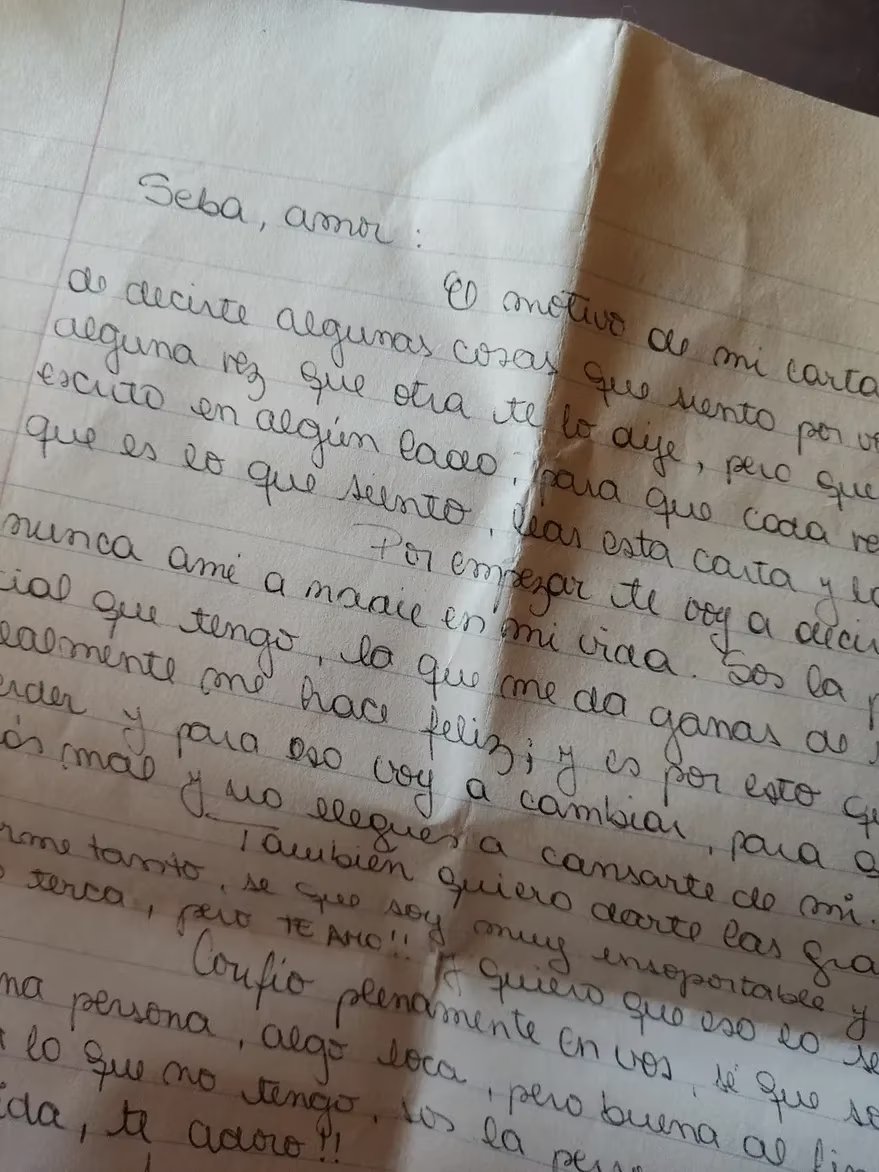 Seba, amor:
El motivo de mi carta
de decirte algunas cosas que siento por
alguna vez que otra te lo dije, pero que
escrito en algún lado, para que cada
que es lo que siento, leas esta carta y
Por empezar te voy a
nunca amé a nadie en mi vida. Sos la
que tengo, lo que me da ganas de
me hace feliz; y es por esto
y para eso voy a cambiar, para
mal y no llegues a cansarte de mi.
También quiero darte las
tanto, se que soy muy insoportable y
terca, pero TE AMO!! Y quiero que eso lo
Confio plenamente en vos, sé que
persona, algo loca, pero buena al
lo que no tengo, sos la
te adoro!!